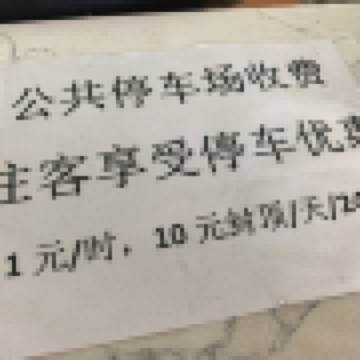 公共停车场收费
住客享受停车优惠
1 元/时，10 元封顶/天/20